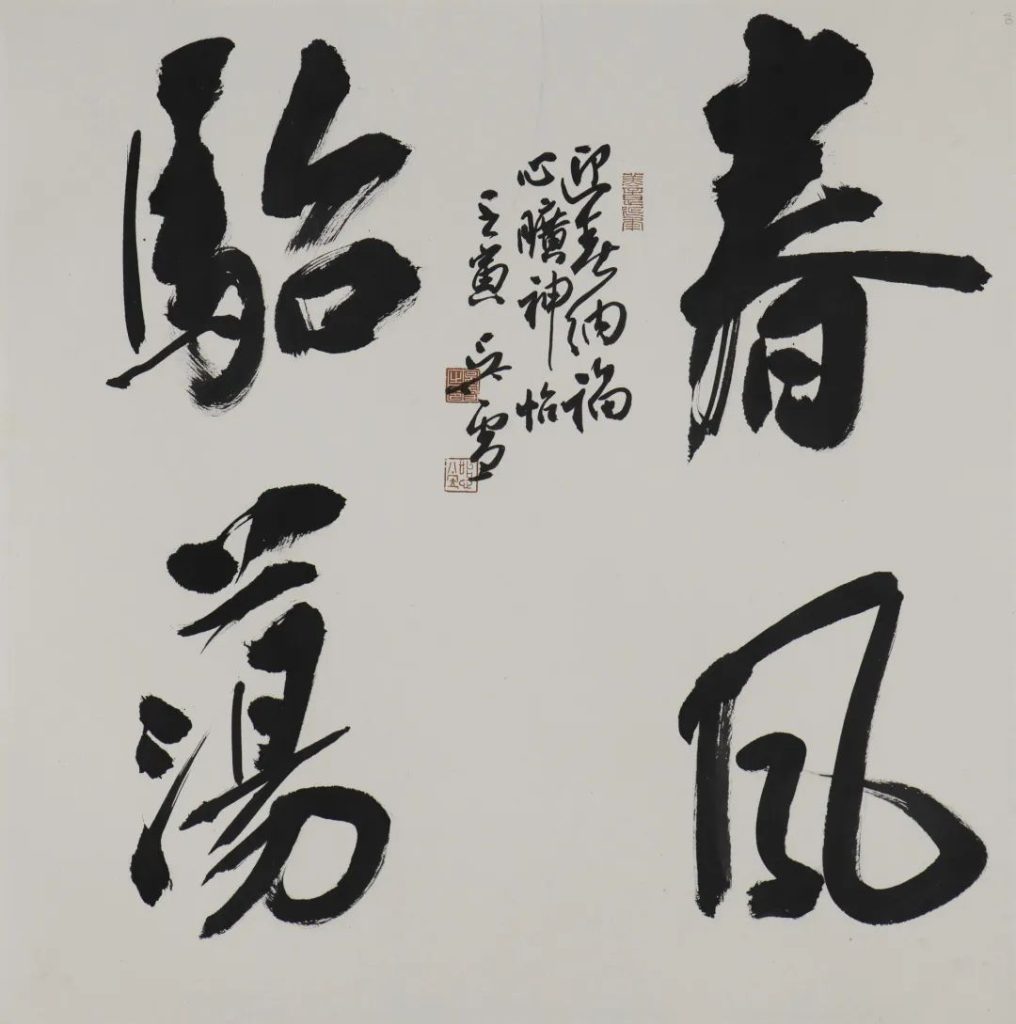 春風
駘蕩
迎春納福
心曠神怡
壬寅 吳雪